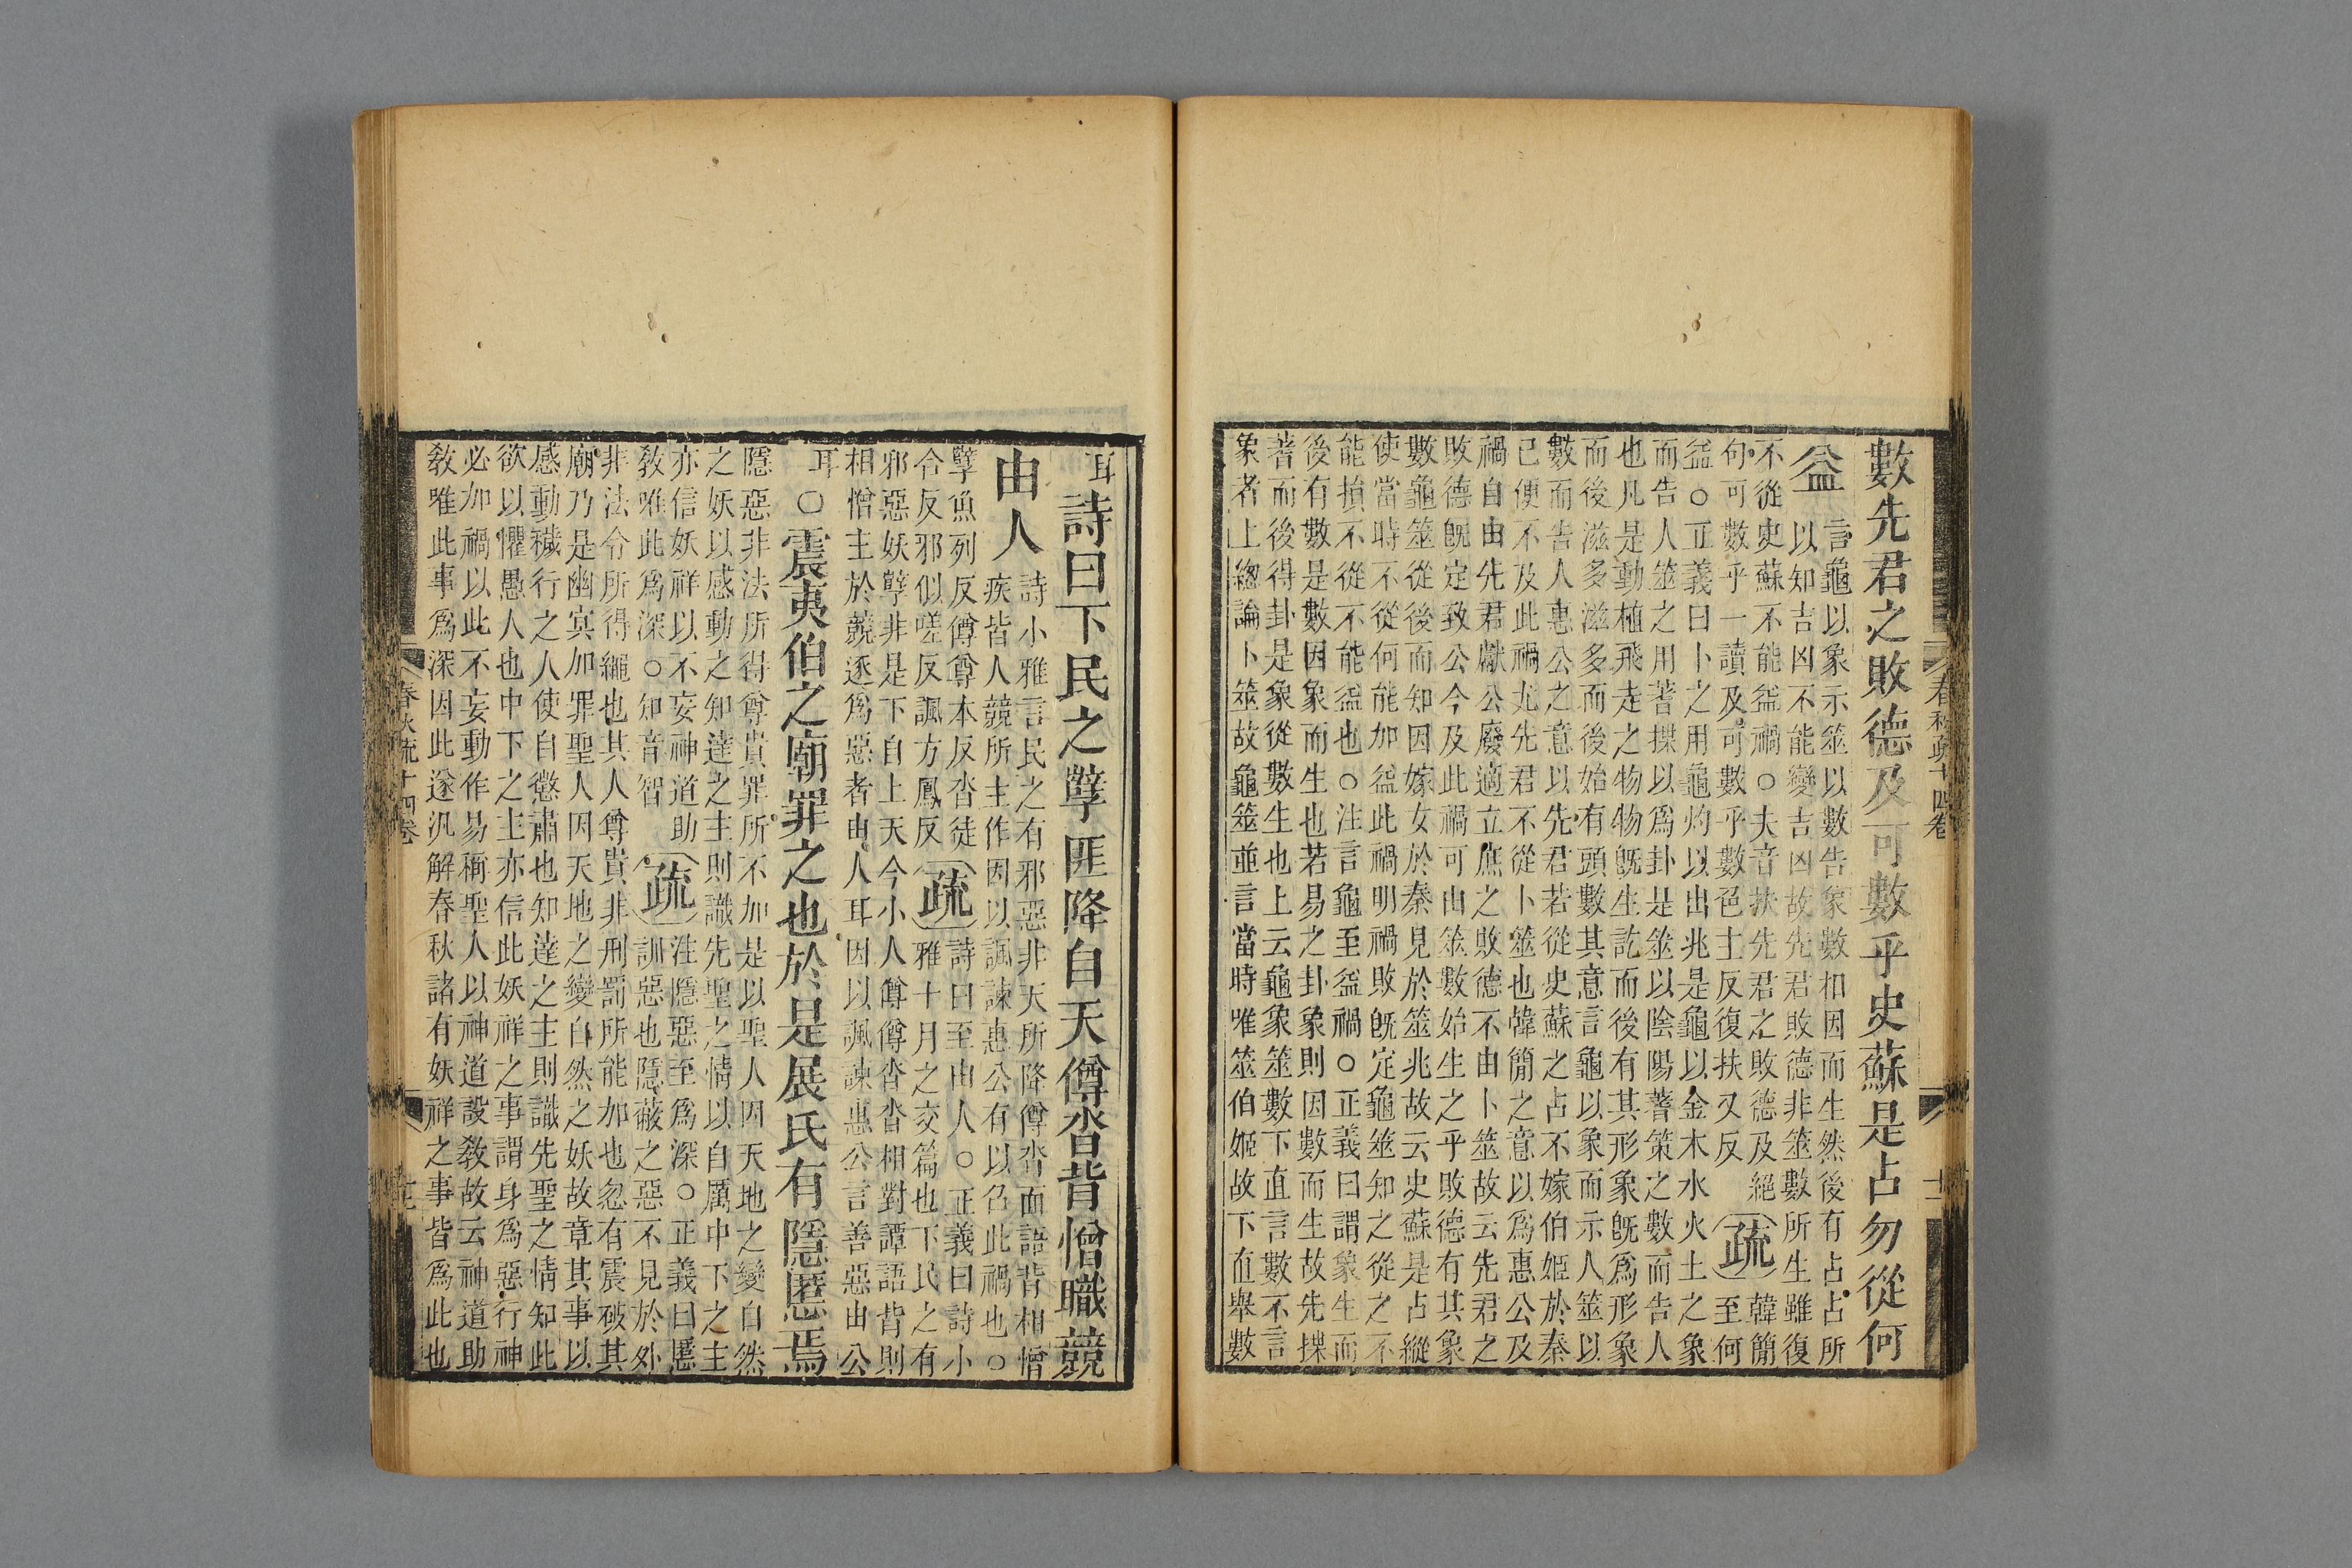 數先君之敗德及可數乎史蘇是占勿從何
益
言龜以象示筮以數告象數相因而生然後有占占所
以知吉凶不能變吉凶故先君敗德非筮數所生雖復
不從史蘇不能益禍○夫音扶先君之敗德及絕
句可數乎一讀及可數乎數色主反復扶又反
疏
韓簡
至何
益○正義曰卜之用龜灼以出兆是龜以金木水火土之象
而告人筮之用蓍揲以爲卦是筮以陰陽蓍策之數而告人
也凡是動植飛走之物物旣生訖而後有其形象旣爲形象
而後滋多滋多而後始有頭數其意言龜以象而示人筮以
數而告人惠公之意以先君若從史蘇之占不嫁伯姬於秦
已便不及此禍尤先君不從卜筮也韓簡之意以爲惠公及
禍自由先君獻公廢適立庶之敗德不由卜筮故云先君之
敗德旣定致公今及此禍可由筮數始生之乎敗德有其象
數龜筮從後而知因嫁女於秦見於筮兆故云史蘇是占縱
使當時不從何能加益此禍明禍敗旣定龜筮知之從之不
能損不從不能益也○注言龜至益禍○正義曰謂象生而
後有數是數因象而生也若易之卦象則因數而生故先揲
蓍而後得卦是象從數生也上云龜象筮數下直言數不言
象者上總論卜筮故龜筮並言當時唯筮伯姬故下直舉數
春秋疏十四卷
十二
耳
詩曰下民之孽匪降自天僔沓背憎職競
由人
詩小雅言民之有邪惡非天所降僔沓面語背相憎
疾皆人競所主作因以諷諫惠公有以召此禍也○
孽魚列反僔尊本反沓徒
合反邪似嗟反諷方鳳反
疏
詩曰至由人○正義曰詩小
雅十月之交篇也下民之有
邪惡妖孽非是下自上天今小人僔僔沓沓相對譚語背則
相憎主於競逐爲惡者由人耳因以諷諫惠公言善惡由公
耳
○震夷伯之廟罪之也於是展氏有隱慝焉
隱惡非法所得尊貴罪所不加是以聖人因天地之變自然
之妖以感動之知達之主則識先聖之情以自厲中下之主
亦信妖祥以不妄神道助
敎唯此爲深○知音智
疏
注隱惡至爲深○正義曰慝
訓惡也隱蔽之惡不見於外
非法令所得繩也其人尊貴非刑罰所能加也忽有震破其
廟乃是幽冥加罪聖人因天地之變自然之妖故章其事以
感動穢行之人使自懲肅也知達之主則識先聖之情知此
欲以懼愚人也中下之主亦信此妖祥之事謂身爲惡行神
必加禍以此不妄動作易稱聖人以神道設敎故云神道助
敎唯此事爲深因此遂汎解春秋諸有妖祥之事皆爲此也
春秋疏十四卷